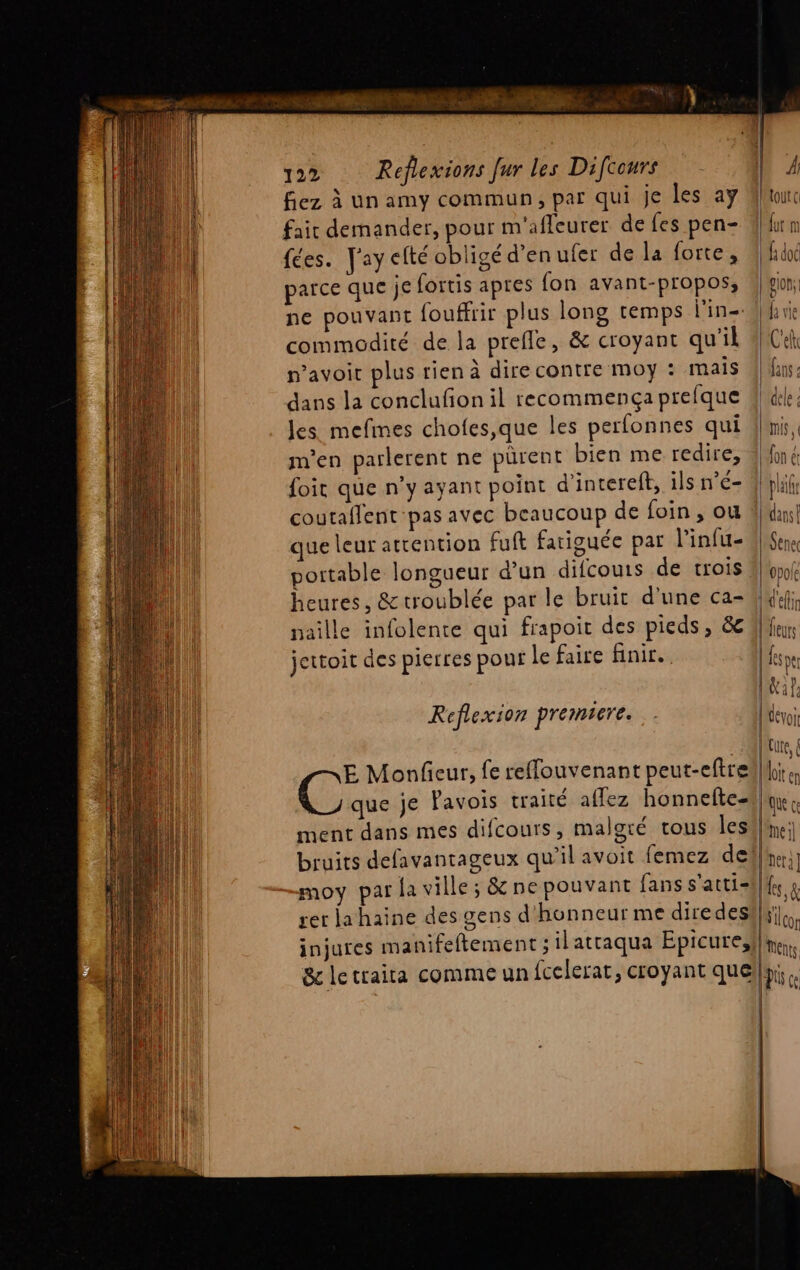 122 Reflexions ſur les Diſcours
fiez à un amy commun, par qui je les ay
fait demander, pour m'aſſeurer de ſes pen-
ſées. J'ay eſté obligé d'en uſer de la ſorte,
parce que je ſortis apres ſon avant-propos,
ne pouvant ſouffrir plus long temps l'in-
commodité de la preſſe, & croyant qu'il
n'avoit plus rien à dire contre moy : mais
dans la concluſion il recommença preſque
les meſmes choſes, que les perſonnes qui
m'en parlerent ne pûrent bien me redire,
ſoit que n'y ayant point d'intereſt, ils n'é-
coutaſſent pas avec beaucoup de ſoin, ou
que leur attention fuſt fatiguée par l'inſu-
portable longueur d'un diſcours de trois
heures, & troublée par le bruit d'une ca-
naille inſolente qui frapoit des pieds, &
jettoit des pierres pour le faire finir.
Reflexion premiere.
CE Monſieur, ſe reſſouvenant peut-eſtre
que je l'avois traité aſſez honneſte-
ment dans mes diſcours, malgré tous les
bruits deſavantageux qu'il avoit ſemez de
moy par la ville ; & ne pouvant ſans s'atti-
rer la haine des gens d'honneur me dire des
injures manifeſtement ; il attaqua Epicure,
& le traita comme un ſcelerat, croyant que